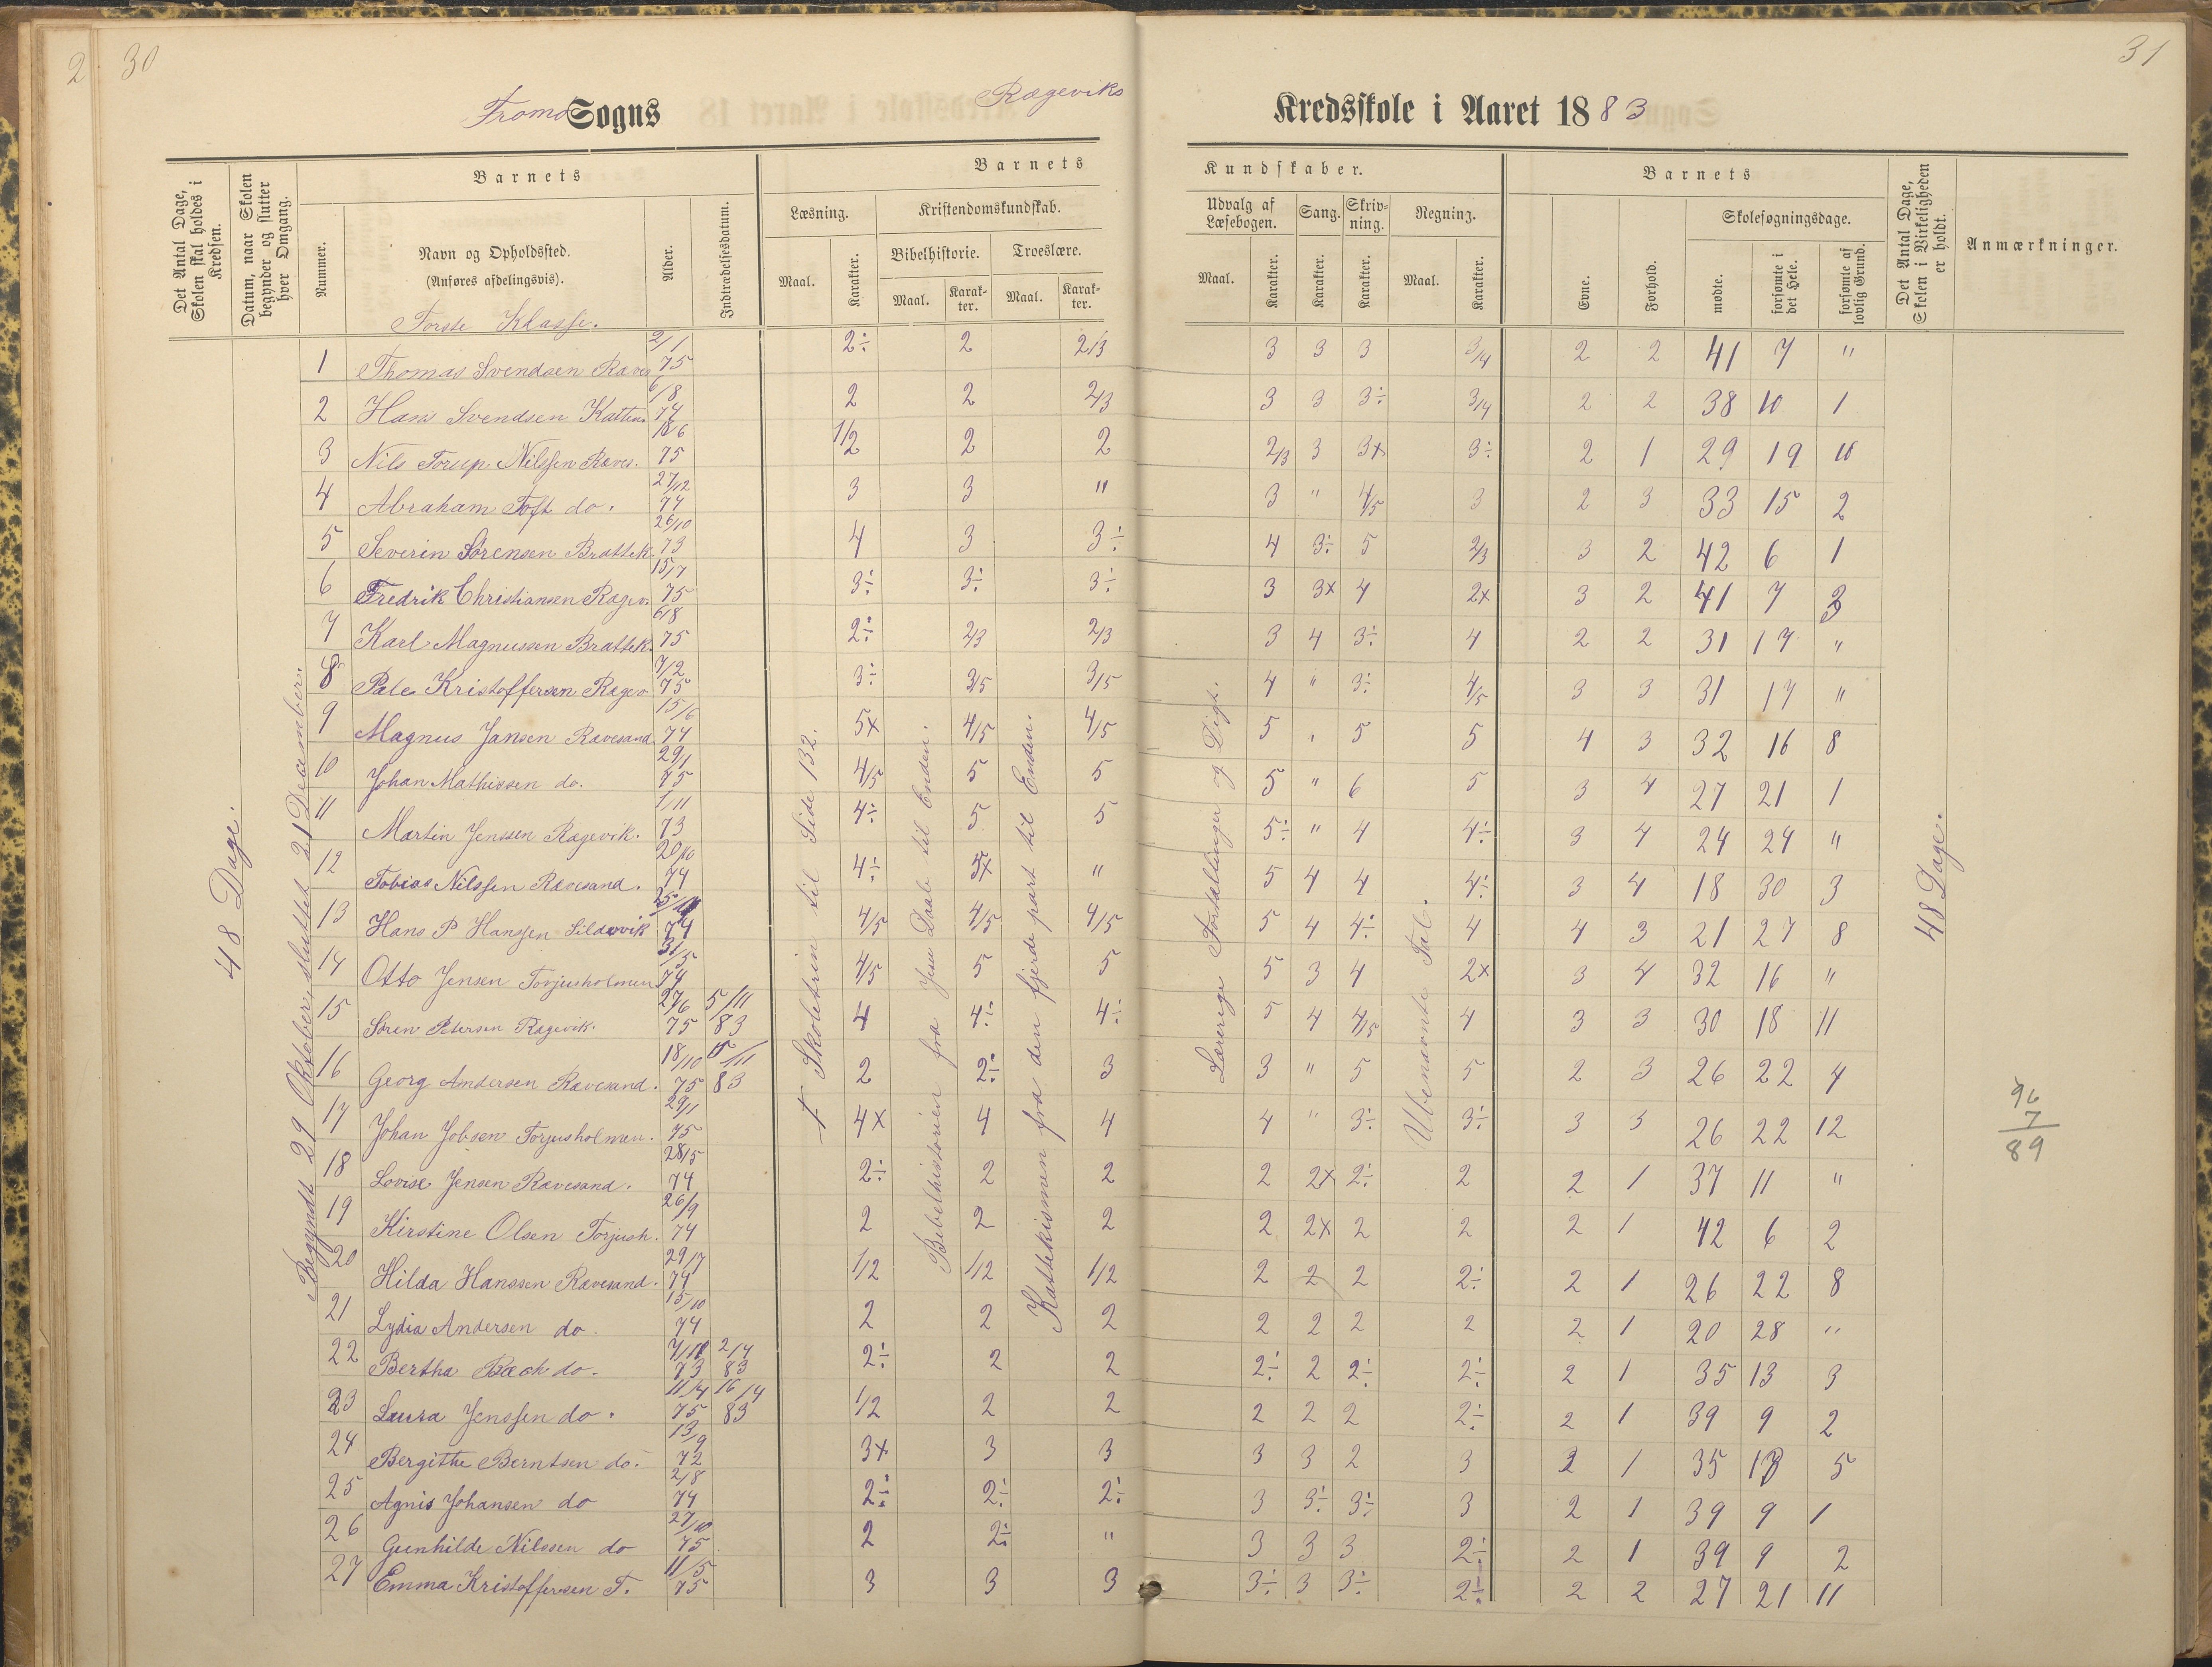 2 30
31
Tromø Sogns Rægeviks Kredsskole i Aaret 1883
Det Antal Dage, Skolen skal holdes i Kredsen.
Datum, naar Skolen begynder og slutter hver Omgang.
Barnets
Nummer.
Navn og Opholdssted.
(Anføres afdelingsvis).
Alder.
Indtrædelsesdatum.
Barnets Kundskaber.
Læsning.
Maal. Karakter.
Kristendomskundskab.
Bibelhistorie.
Maal. Karakter.
Troeslære.
Maal. Karakter.
Udvalg af Læsebogen.
Maal. Karakter.
Sang.
Karakter.
Skrivning.
Karakter.
Regning.
Maal. Karakter.
Barnets
Evne.
Forhold.
Skolesøgningsdage.
mødte.
forsømte i det Hele.
forsømte af lovlig Grund.
Det Antal Dage, Skolen i Virkeligheden er holdt.
Anmærkninger.
Første Klasse.
48 Dage.
Begyndt 29 Oktober, sluttet 21 December.
Skoletrin til Side 132.
Bibelhistorien fra Jesu Daab til Enden.
Katekismen fra den fjerde part til Enden.
Lærerige Fortællinger og Digt.
Ubenævnte Tal.
48 Dage.
1 Thomas Svendsen Raves 2/1 75 2÷ 2 2/3 3 3 3 3/4 2 2 41 7 "
2 Hans Svendsen Katten. 6/8 74 2 2 2/3 3 3 3÷ 3/4 2 2 38 10 1
3 Nils Torup Nilssen Raves. 18/6 75 1/2 2 2 2/3 3 3x 3÷ 2 1 29 19 10
4 Abraham Toft do. 27/12 74 3 3 " 3 " 4/5 3 2 3 33 15 2
5 Severin Sörensen Brattek. 26/10 73 4 3 3÷ 4 3÷ 5 2/3 3 2 42 6 1
6 Fredrik Christiansen Ragev. 15/7 75 3÷ 3÷ 3÷ 3 3x 4 2x 3 2 41 7 3
7 Karl Magnussen Brattek. 6/8 75 2÷ 2/3 2/3 3 4 3÷ 4 2 2 31 17 "
8 Pale Kristoffersen Ragev 7/2 75 3÷ 3/5 3/5 4 " 3÷ 4/5 3 3 31 17 "
9 Magnus Jansen Ravesand 15/6 74 5x 4/5 4/5 5 " 5 5 4 3 32 16 8
10 Johan Mathissen do. 29/1 75 4/5 5 5 5 " 6 5 3 4 27 21 1
11 Martin Jenssen Ragevik. 1/11 73 4÷ 5 5 5÷ " 4 4÷ 3 4 24 24 "
12 Tobias Nilssen Ravesand. 20/10 74 4÷ 5x " 5 4 4 4÷ 3 4 18 30 3
13 Hans P Hanssen Sildevik 74 4/5 4/5 4/5 5 4 4÷ 4 4 3 21 27 8
14 Otto Jensen Torjusholmen 31/5 74 4/5 5 5 5 3 4 2x 3 4 32 16 "
15 Sören Petersen Ragevik. 27/6 75 5/11 83 4 4÷ 4÷ 5 4 4/5 4 3 3 30 18 11
16 Georg Andersen Ravesand. 18/10 75 5/11 83 2 2÷ 3 3 " 5 5 2 3 26 22 4
17 Johan Jobsen Torjusholmen. 29/1 75 4x 4 4 4 " 3÷ 3÷ 3 3 26 22 12
18 Lovise Jensen Ravesand. 28/5 74 2÷ 2 2 2 2x 2÷ 2 2 1 37 11 "
19 Kirstine Olsen Torjush. 26/9 74 2 2 2 2 2x 2 2 2 1 42 6 2
20 Hilda Hanssen Ravesand. 29/7 74 1/2 1/2 1/2 2 2 2 2÷ 2 1 26 22 8
21 Lydia Andersen do. 15/10 74 2 2 2 2 2 2 2 2 1 20 28 "
22 Bertha Bach do. 73 2/4 83 2÷ 2 2 2÷ 2 2÷ 2÷ 2 1 35 13 3
23 Laura Jenssen do. 11/4 75 16/4 83 1/2 2 2 2 2 2 2÷ 2 1 39 9 2
24 Bergithe Berntsen do. 13/9 72 3x 3 3 3 3 2 3 2 1 35 13 5
25 Agnis Johansen do 2/8 74 2÷ 2÷ 2÷ 3 3÷ 3÷ 3 2 1 39 9 1
26 Gunhilde Nilssen do 27/10 75 2 2÷ " 3 3 3 2÷ 2 1 39 9 2
27 Emma Kristoffersen T. 11/5 75 3 3 3 3÷ 3 3÷ 2÷ 2 2 27 21 11
96
7
89